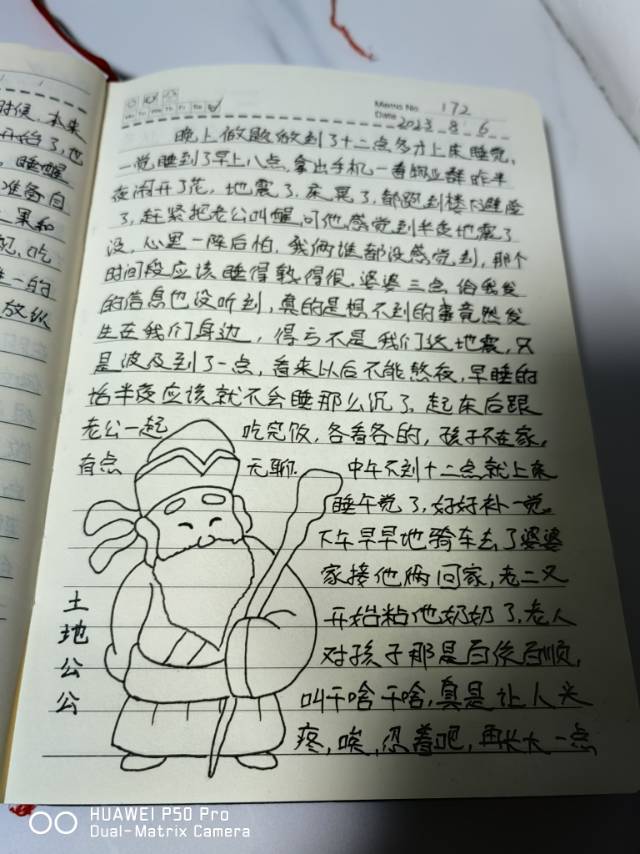 时候,本来
开始了,也
睡醒
准备自
果和
吃
一的
放纵
Memo No. 172
Mo Tu We Th Fr Sa Su
Date 2023.8.6
晚上做题做到了十二点多才上床睡觉,
一觉睡到了早上八点,拿出手机一看物业群昨半
夜闹开了花,地震了,床晃了,都跑到楼下避险
了,赶紧把老公叫醒,问他感觉到半夜地震了
没,心里一阵后怕,我俩谁都没感觉到,那个
时间段应该睡得熟得很,婆婆三点给我发
的信息也没听到,真的是想不到的事竟然发
生在我们身边,得亏不是我们这地震,只
是波及到了一点,看来以后不能熬夜,早睡的
话半夜应该就不会睡那么沉了。起床后跟
老公一起 吃完饭,各看各的,孩子不在家,
有点 无聊. 中午不到十二点就上床
睡午觉了,好好补一觉。
下午早早地骑车去了婆婆
家接他俩回家,老二又
开始粘他奶奶了,老人
对孩子那是百依百顺,
叫干啥干啥,真是让人头
疼,唉,忍着吧,再长大一点
土地公公
HUAWEI P50 Pro
Dual-Matrix Camera